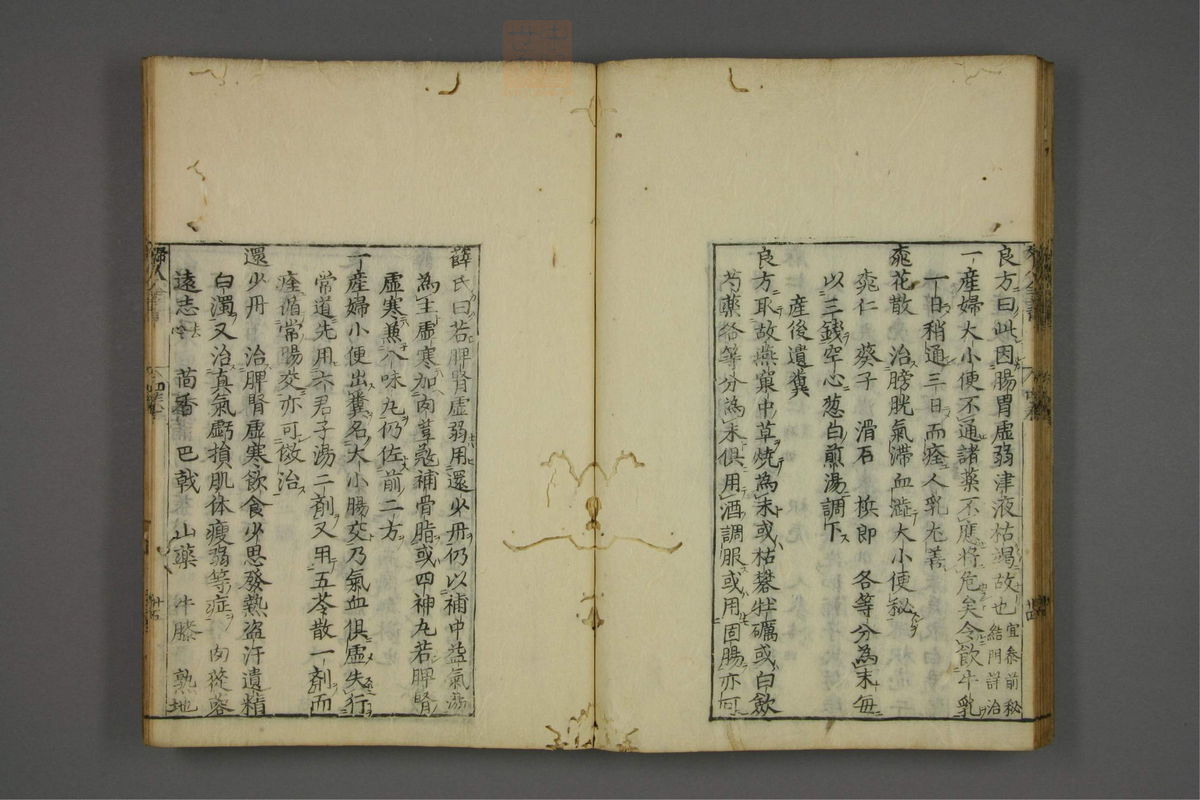 良方曰此因腸胃虛弱津液枯竭故也宜參前秘結門詳治
一産婦大小便不通諸薬不應將危矣令飲牛乳
一日稍通三日而痊人乳尤善
桃花散 治膀胱氣滯血澁大小便秘
桃仁 葵子 滑石 檳郎 各等分為末毎
以三錢空心葱白煎湯調下
産後遺糞
良方取故燕窠中草燒為末或枯礬牡礪或白歛
芍藥各等分為末俱用酒調服或用固腸亦可
薛氏曰若脾腎虛弱用還少丹仍以補中益氣湯
為主虛寒加肉荳蔻補骨脂或四神丸若脾腎
虛寒兼八味丸仍佐前二方
一産婦小便出糞名大小腸交乃氣血俱虛失行
常道先用六君子湯二剤又用五苓散一剤而
痊循常腸交亦可倣治
還少丹 治脾腎虛寒飲食少思發熱盗汗遺精
白濁又治真氣虧損肌体瘦弱等症 肉蓯蓉
遠志 茴香 巴戟 山藥 牛膝 熟地